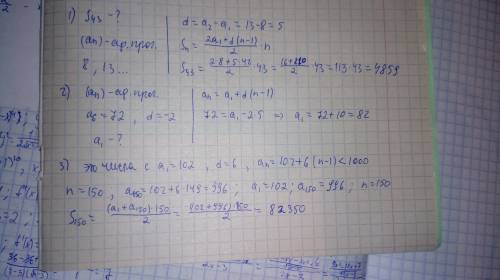 1) S₄₃ - ?
(aₙ) - ар. прог.
8, 13...
d = a₂ - a₁ = 13 - 8 = 5
Sₙ = (2a₁ + d(n-1))/2 · n
S₄₃ = (2·8 + 5·42)/2 · 43 = (16+210)/2 · 43 = 113·43 = 4859
2) (aₙ) - ар. прог.
a₆ = 72, d = -2
a₁ - ?
aₙ = a₁ + d(n-1)
72 = a₁ - 2·5 ⇒ a₁ = 72 + 10 = 82
3) это числа с a₁ = 102, d = 6, aₙ = 102 + 6(n-1) < 1000
n = 150, a₁₅₀ = 102 + 6·149 = 996; a₁ = 102; a₁₅₀ = 996; n = 150
S₁₅₀ = (a₁ + a₁₅₀)·150/2 = (102 + 996)·150/2 = 82350